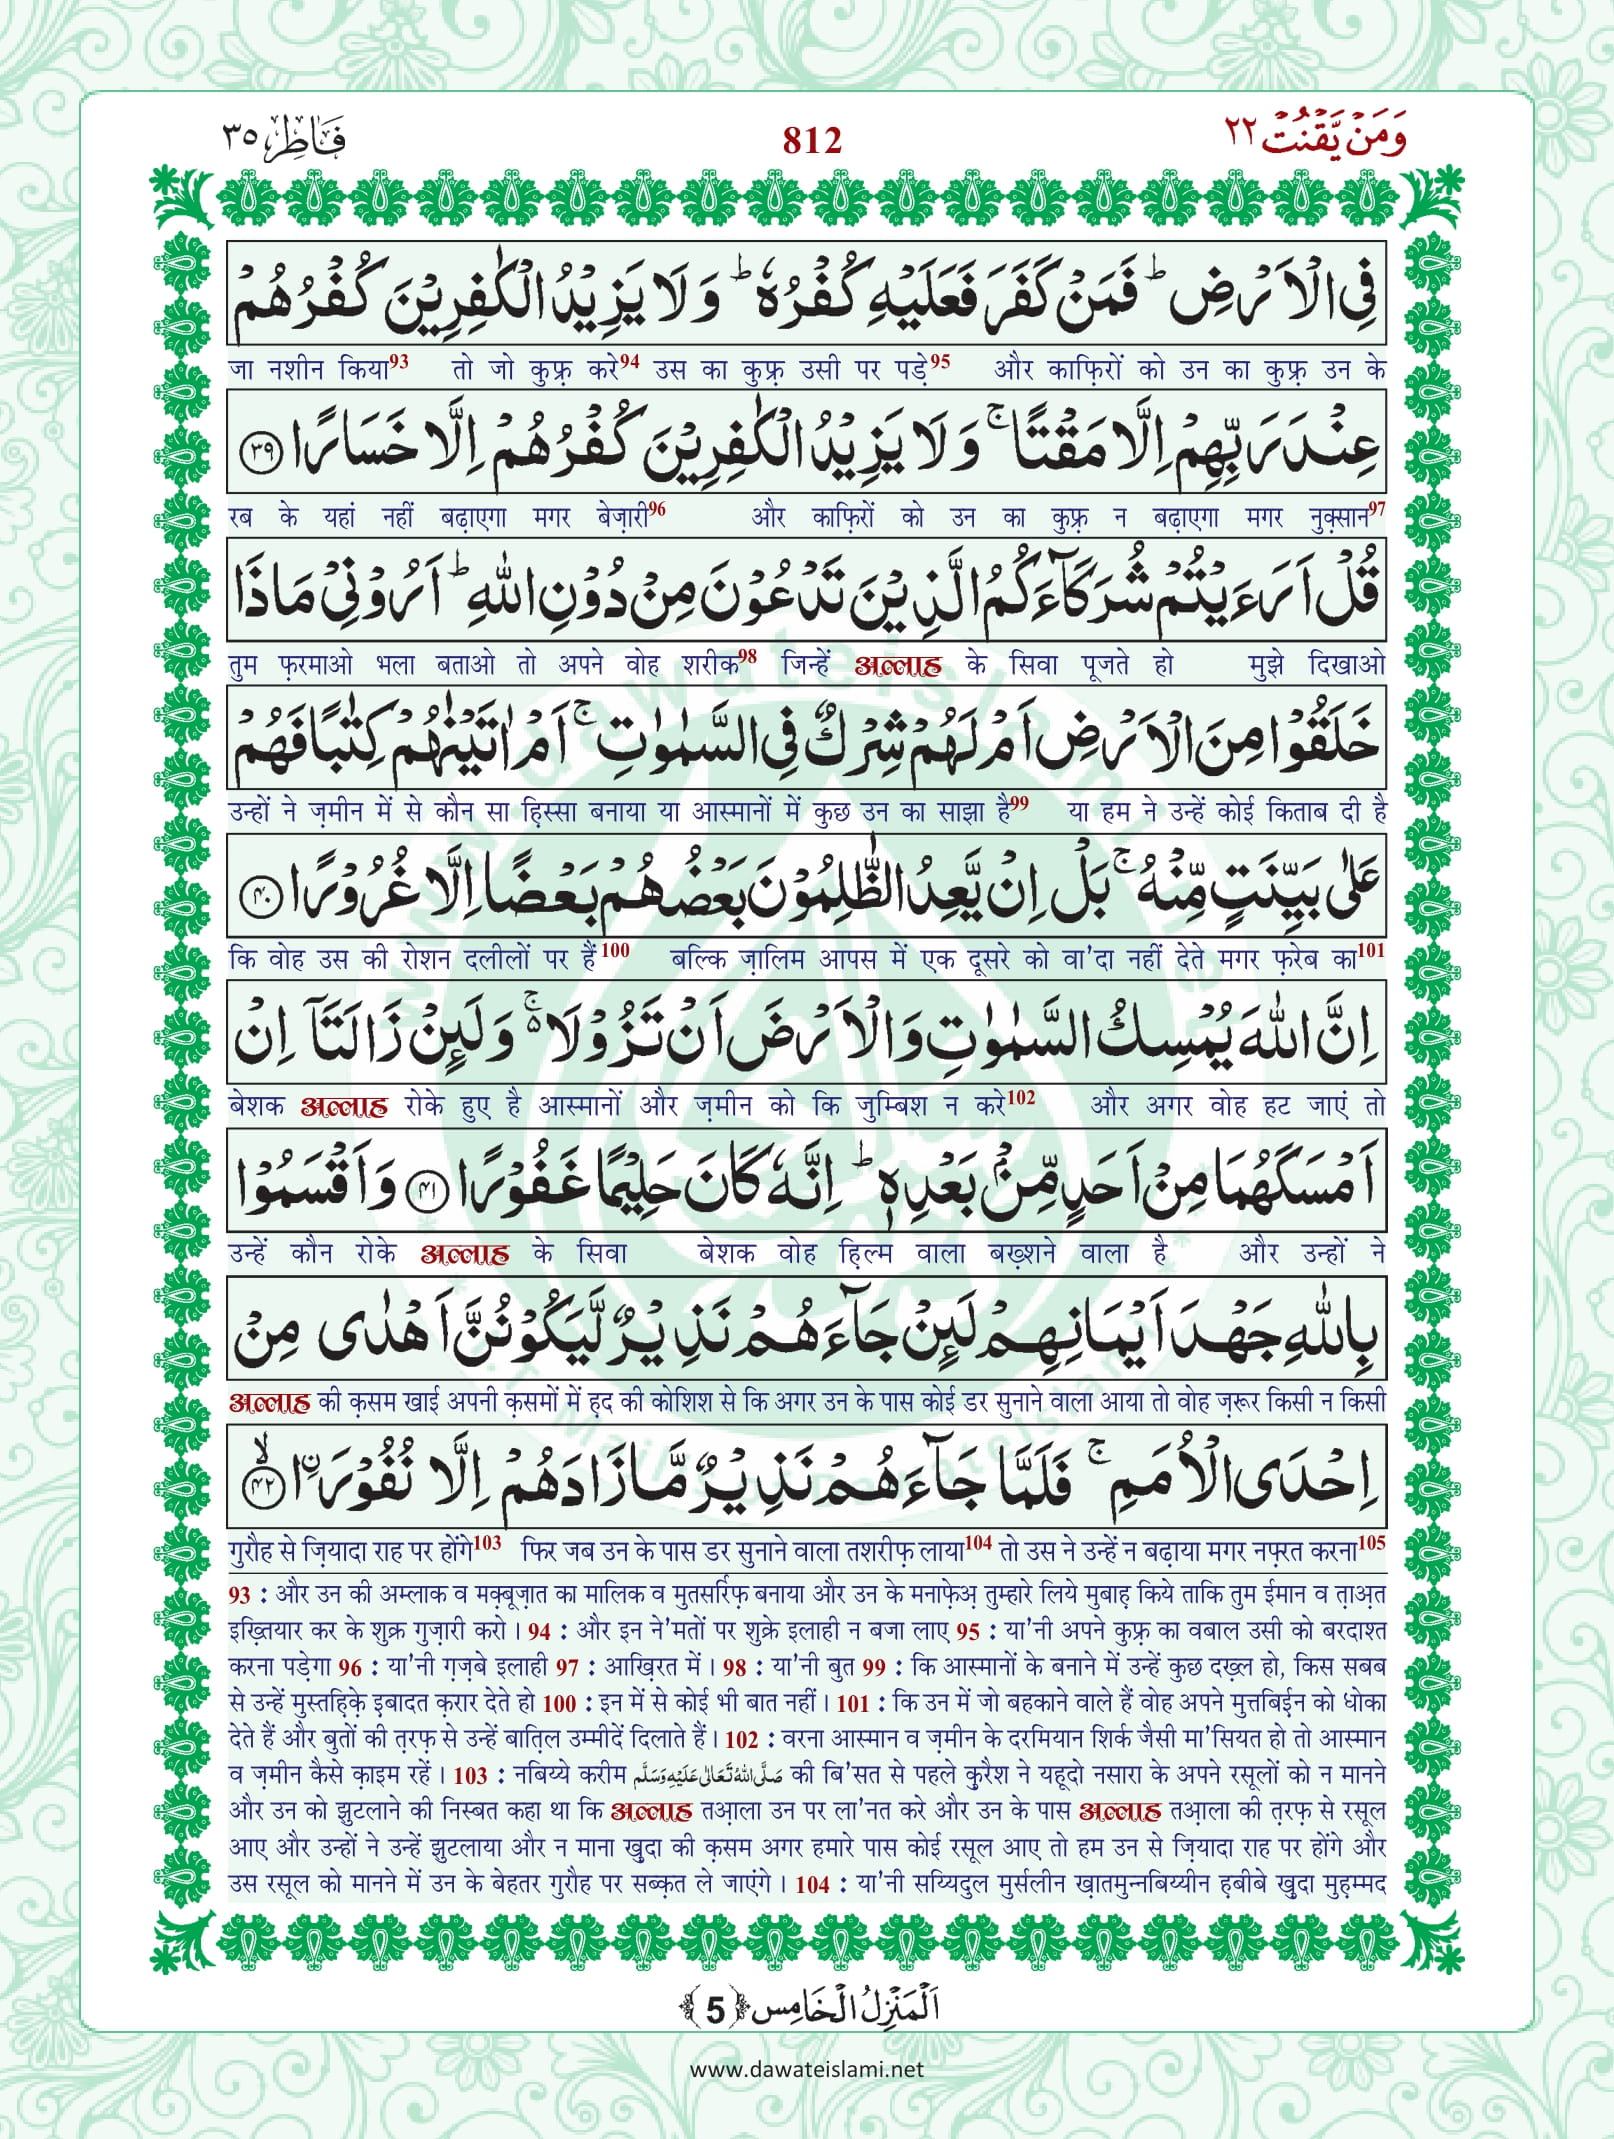 وَمَنْ يَّقْنُتْ ٢٢
812
فَاطِر ٣٥
فِی الْاَرْضِ ؕ فَمَنْ كَفَرَ فَعَلَیْهِ كُفْرُهٗ ؕ وَلَا یَزِیْدُ الْكٰفِرِیْنَ كُفْرُهُمْ
जा नशीन किया93 तो जो कुफ़्र करे94 उस का कुफ़्र उसी पर पड़े95 और काफ़िरों को उन का कुफ़्र उन के
عِنْدَ رَبِّهِمْ اِلَّا مَقْتًا ۚ وَلَا یَزِیْدُ الْكٰفِرِیْنَ كُفْرُهُمْ اِلَّا خَسَارًا ﴿۳۹﴾
रब के यहां नहीं बढ़ाएगा मगर बेज़ारी96 और काफ़िरों को उन का कुफ़्र न बढ़ाएगा मगर नुक़्सान97
قُلْ اَرَءَیْتُمْ شُرَكَآءَكُمُ الَّذِیْنَ تَدْعُوْنَ مِنْ دُوْنِ اللّٰهِ ؕ اَرُوْنِیْ مَاذَا
तुम फ़रमाओ भला बताओ तो अपने वोह शरीक98 जिन्हें अल्लाह के सिवा पूजते हो मुझे दिखाओ
خَلَقُوْا مِنَ الْاَرْضِ اَمْ لَهُمْ شِرْكٌ فِی السَّمٰوٰتِ ۚ اَمْ اٰتَیْنٰهُمْ كِتٰبًا فَهُمْ
उन्हों ने ज़मीन में से कौन सा हिस्सा बनाया या आस्मानों में कुछ उन का साझा है99 या हम ने उन्हें कोई किताब दी है
عَلٰی بَیِّنَتٍ مِّنْهُ ۚ بَلْ اِنْ یَّعِدُ الظّٰلِمُوْنَ بَعْضُهُمْ بَعْضًا اِلَّا غُرُوْرًا ﴿۴۰﴾
कि वोह उस की रोशन दलीलों पर हैं100 बल्कि ज़ालिम आपस में एक दूसरे को वा'दा नहीं देते मगर फ़रेब का101
اِنَّ اللّٰهَ یُمْسِكُ السَّمٰوٰتِ وَالْاَرْضَ اَنْ تَزُوْلَا ۚ۬ وَلَىِٕنْ زَالَتَاۤ اِنْ
बेशक अल्लाह रोके हुए है आस्मानों और ज़मीन को कि जुम्बिश न करे102 और अगर वोह हट जाएं तो
اَمْسَكَهُمَا مِنْ اَحَدٍ مِّنْۢ بَعْدِهٖ ؕ اِنَّهٗ كَانَ حَلِیْمًا غَفُوْرًا ﴿۴۱﴾ وَاَقْسَمُوْا
उन्हें कौन रोके अल्लाह के सिवा बेशक वोह हिल्म वाला बख़्शने वाला है और उन्हों ने
بِاللّٰهِ جَهْدَ اَیْمَانِهِمْ لَىِٕنْ جَآءَهُمْ نَذِیْرٌ لَّیَكُوْنُنَّ اَهْدٰی مِنْ
अल्लाह की क़सम खाई अपनी क़समों में हद की कोशिश से कि अगर उन के पास कोई डर सुनाने वाला आया तो वोह ज़रूर किसी न किसी
اِحْدَی الْاُمَمِ ۚ فَلَمَّا جَآءَهُمْ نَذِیْرٌ مَّا زَادَهُمْ اِلَّا نُفُوْرَاۙ ﴿۴۲﴾
गुरौह से ज़ियादा राह पर होंगे103 फिर जब उन के पास डर सुनाने वाला तशरीफ़ लाया104 तो उस ने उन्हें न बढ़ाया मगर नफ़रत करना105
93 : और उन की अम्लाक व मक़्बूज़ात का मालिक व मुतसर्रिफ़ बनाया और उन के मनाफ़ेअ़ तुम्हारे लिये मुबाह़ किये ताकि तुम ईमान व त़ाअ़त
इख़्तियार कर के शुक्र गुज़ारी करो। 94 : और इन ने'मतों पर शुक्रे इलाही न बजा लाए 95 : या'नी अपने कुफ़्र का वबाल उसी को बरदाश्त
करना पड़ेगा 96 : या'नी ग़ज़बे इलाही 97 : आख़िरत में। 98 : या'नी बुत 99 : कि आस्मानों के बनाने में उन्हें कुछ दख़्ल हो, किस सबब
से उन्हें मुस्तहि़क़े इ़बादत क़रार देते हो 100 : इन में से कोई भी बात नहीं। 101 : कि उन में जो बहकाने वाले हैं वोह अपने मुत्तबिई़न को धोका
देते हैं और बुतों की त़रफ़ से उन्हें बात़िल उम्मीदें दिलाते हैं। 102 : वरना आस्मान व ज़मीन के दरमियान शिर्क जैसी मा'सियत हो तो आस्मान
व ज़मीन कैसे क़ाइम रहें। 103 : नबिय्ये करीम صَلَّى اللّٰهُ تَعَالٰى عَلَيْهِ وَسَلَّم की बि'सत से पहले क़ुरैश ने यहूदो नसारा के अपने रसूलों को न मानने
और उन को झुटलाने की निस्बत कहा था कि अल्लाह तआ़ला उन पर ला'नत करे और उन के पास अल्लाह तआ़ला की त़रफ़ से रसूल
आए और उन्हों ने उन्हें झुटलाया और न माना ख़ुदा की क़सम अगर हमारे पास कोई रसूल आए तो हम उन से ज़ियादा राह पर होंगे और
उस रसूल को मानने में उन के बेहतर गुरौह पर सब्क़त ले जाएंगे। 104 : या'नी सय्यिदुल मुर्सलीन ख़ातमुन्नबिय्यीन ह़बीबे ख़ुदा मुह़म्मद
اَلْمَنْزِلُ الْخَامِس ﴿5﴾
www.dawateislami.net